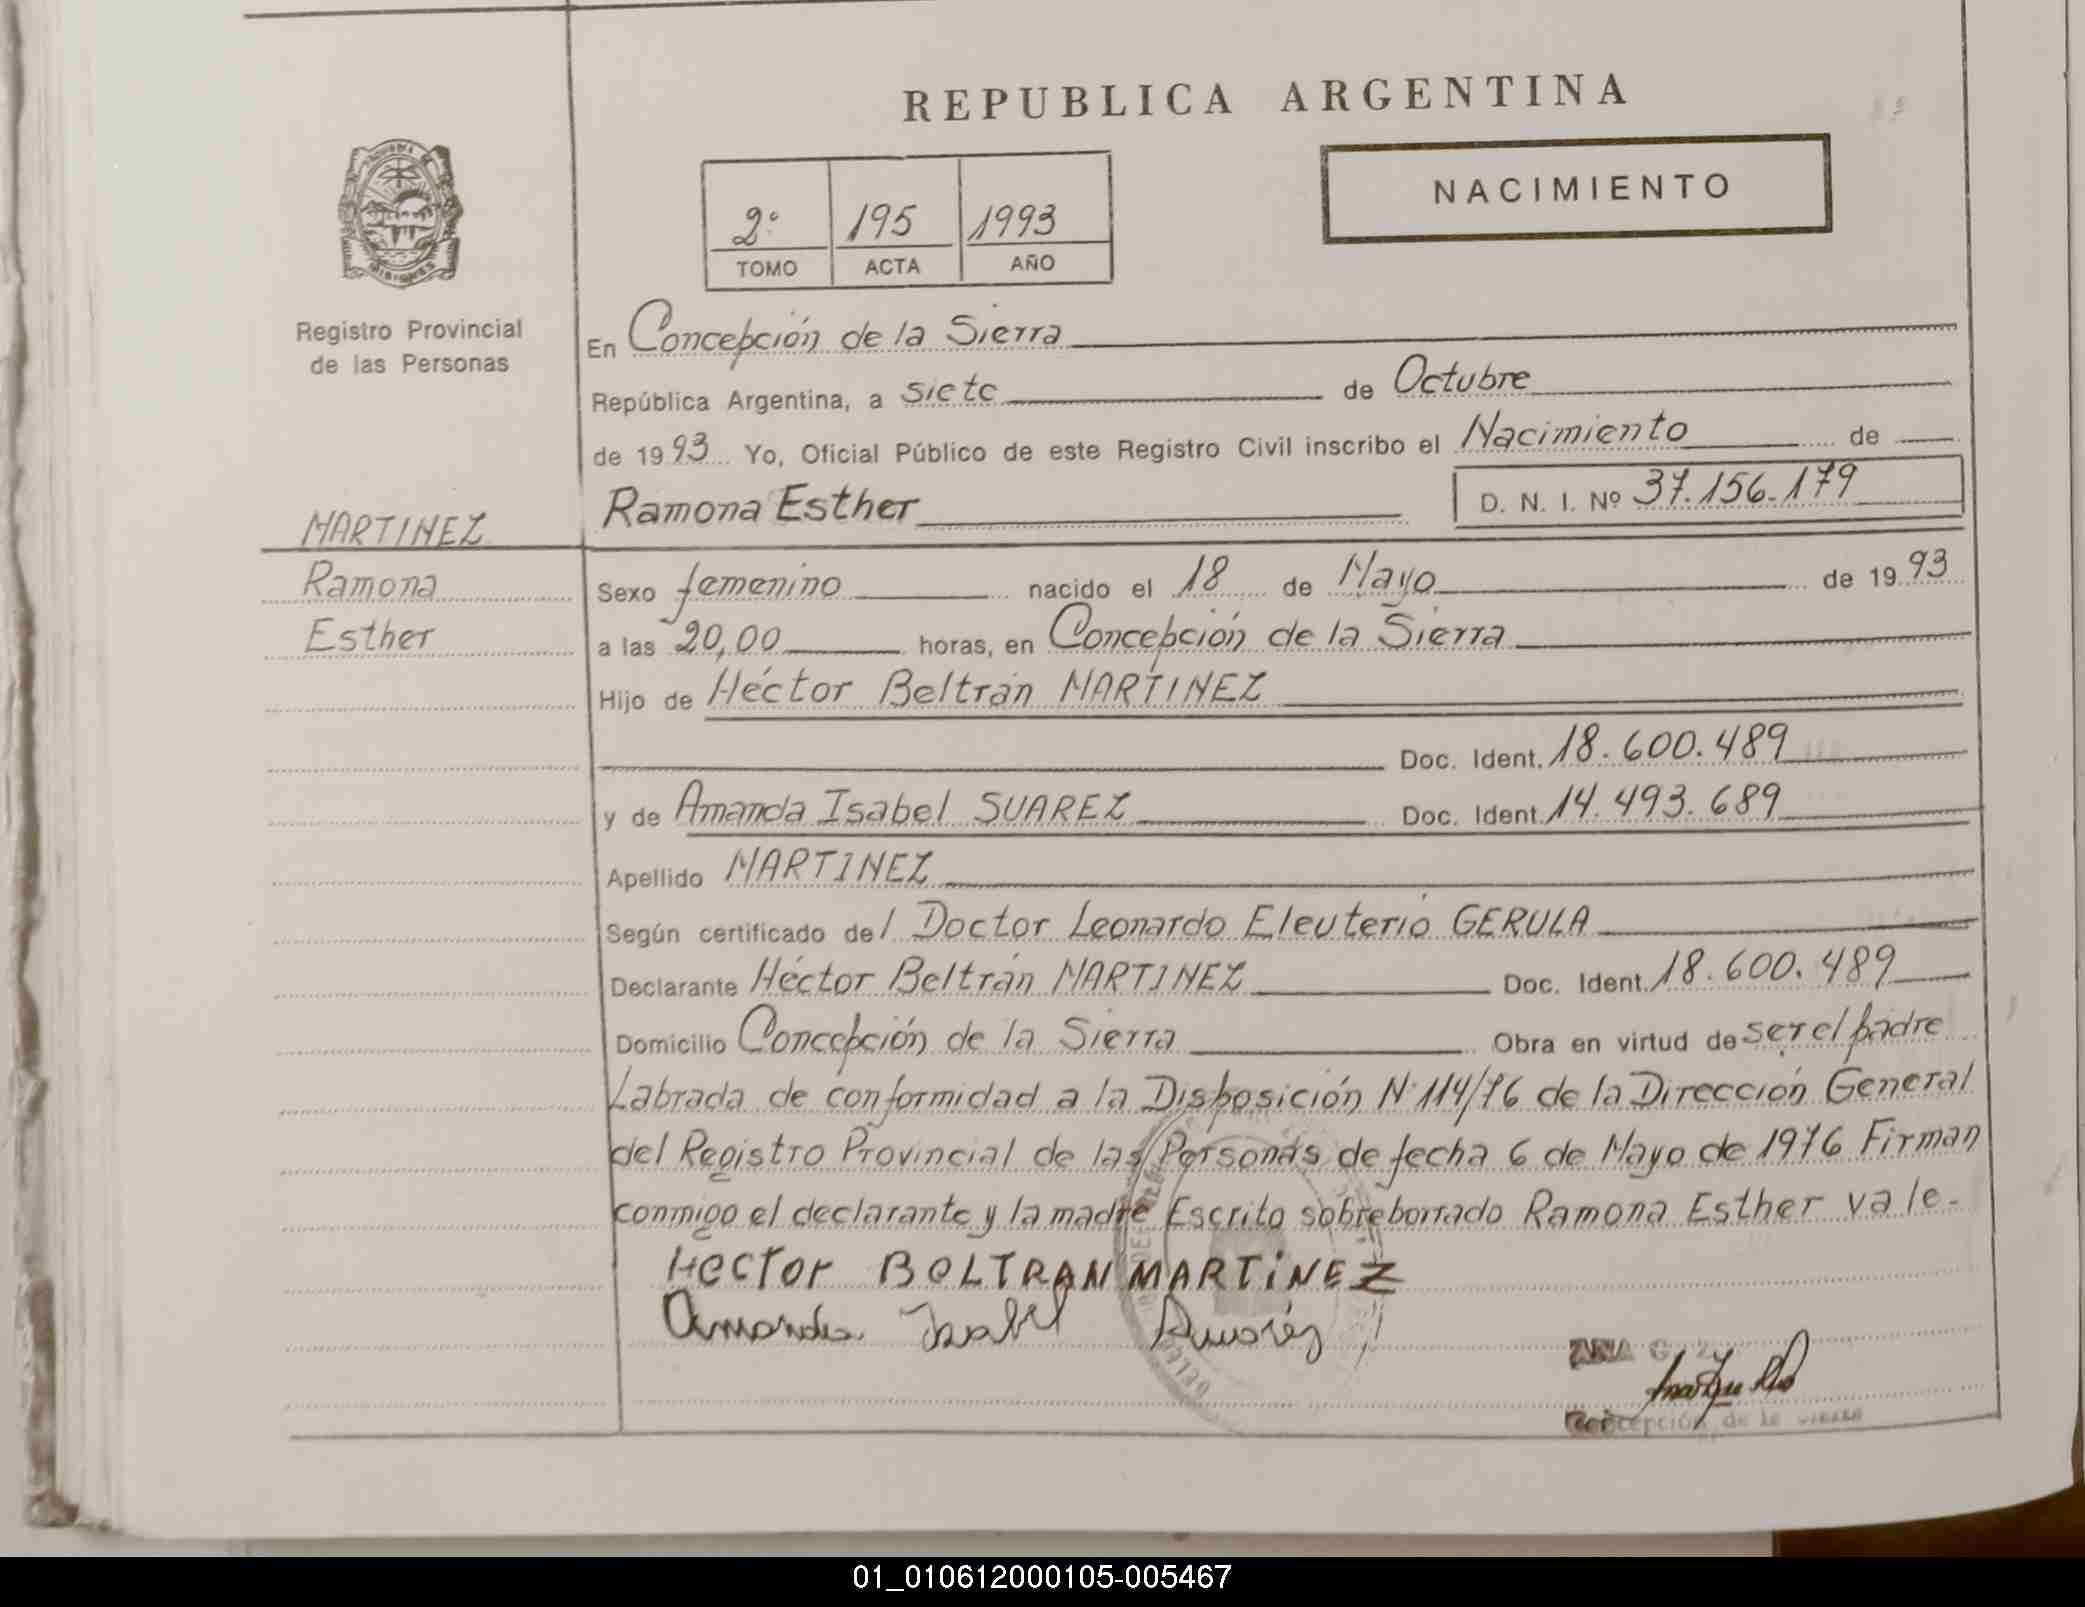 REPUBLICA ARGENTINA
NACIMIENTO
2º 195 1993
TOMO ACTA AÑO
Registro Provincial
de las Personas
En Concepción de la Sierra
República Argentina, a siete de Octubre
de 1993 Yo, Oficial Público de este Registro Civil inscribo el Nacimiento de
Ramona Esther D. N. I. Nº 37.156.179
MARTINEZ
Ramona
Esther
Sexo femenino nacido el 18 de Mayo de 1993
a las 20,00 horas, en Concepción de la Sierra
Hijo de Héctor Beltrán MARTINEZ
Doc. Ident. 18.600.489
y de Amanda Isabel SUAREZ Doc. Ident. 14.493.689
Apellido MARTINEZ
Según certificado del Doctor Leonardo Eleuterio GERULA
Declarante Héctor Beltrán MARTINEZ Doc. Ident. 18.600.489
Domicilio Concepción de la Sierra Obra en virtud de ser el padre
Labrada de conformidad a la Disposición Nº 114/76 de la Dirección General
del Registro Provincial de las Personas de fecha 6 de Mayo de 1976 Firman
conmigo el declarante y la madre Escrito sobreborrado Ramona Esther vale-
HECTOR BELTRAN MARTINEZ
Amanda Isabel Suarez
Concepción de la Sierra
01_010612000105-005467